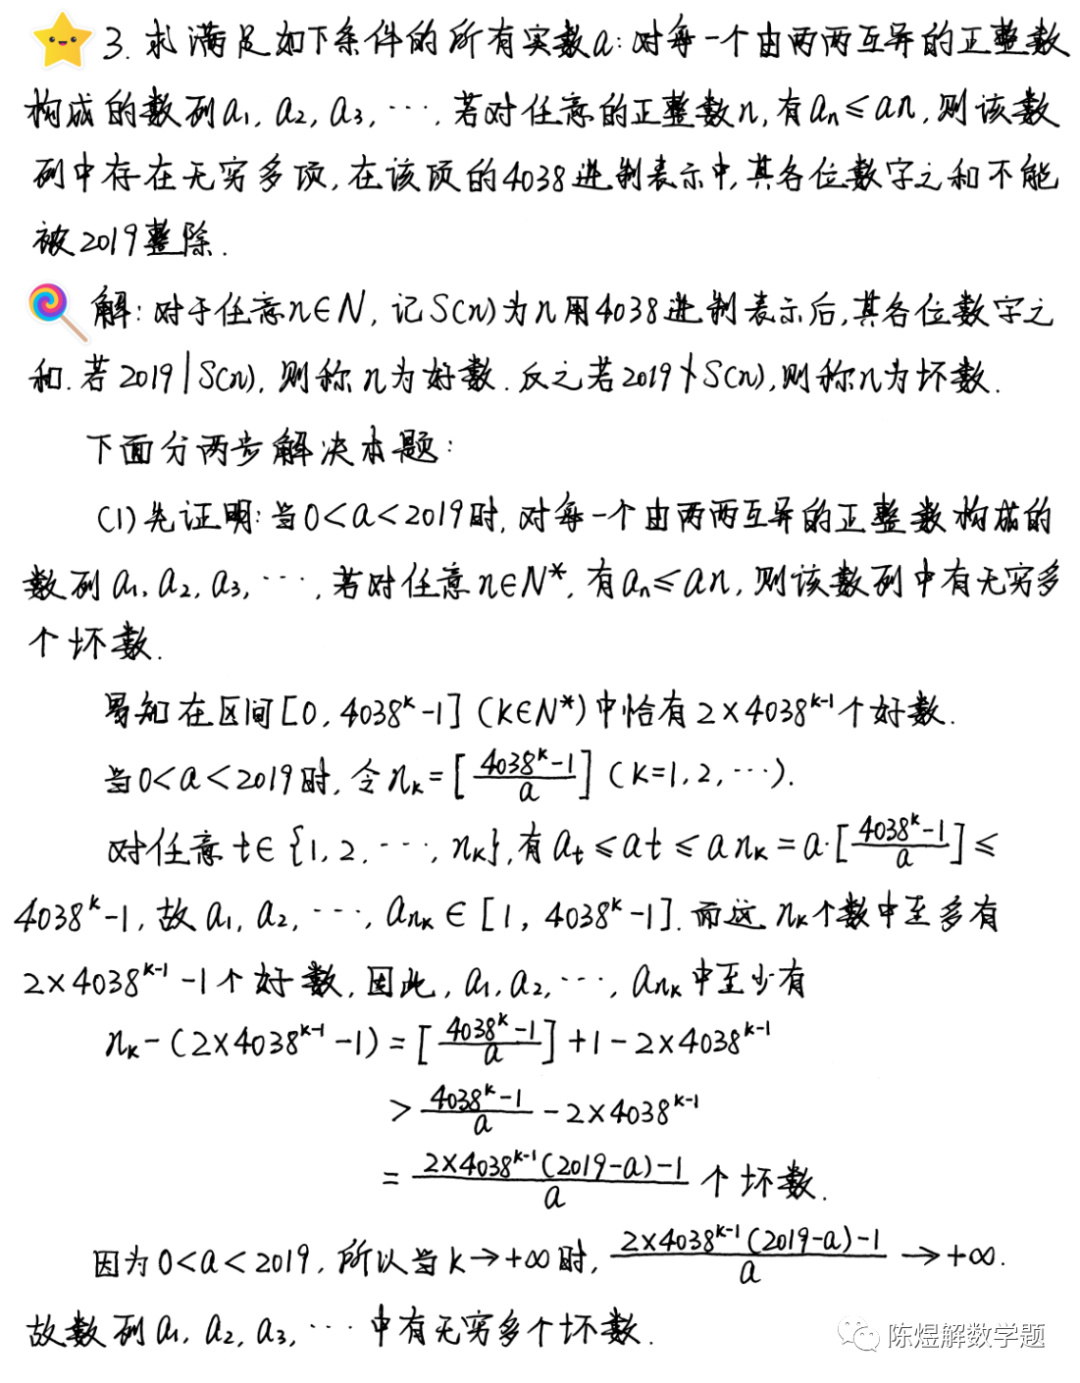 3. 求满足如下条件的所有实数a:对每一个由两两互异的正整数
构成的数列a₁, a₂, a₃, ⋯, 若对任意的正整数n, 有aₙ≤an, 则该数
列中存在无穷多项, 在该项的4038进制表示中, 其各位数字之和不能
被2019整除.
解: 对于任意n∈N, 记S(n)为n用4038进制表示后, 其各位数字之
和. 若2019|S(n), 则称n为好数. 反之若2019∤S(n), 则称n为坏数.
下面分两步解决本题:
(1) 先证明: 当0<a<2019时, 对每一个由两两互异的正整数构成的
数列a₁, a₂, a₃, ⋯, 若对任意n∈N*, 有aₙ≤an, 则该数列中有无穷多
个坏数.
易知在区间[0, 4038ᵏ-1] (k∈N*)中恰有2×4038ᵏ⁻¹个好数.
当0<a<2019时, 令nₖ=[(4038ᵏ-1)/a] (k=1, 2, ⋯).
对任意t∈{1, 2, ⋯, nₖ}, 有aₜ≤at≤anₖ=a·[(4038ᵏ-1)/a]≤
4038ᵏ-1, 故a₁, a₂, ⋯, aₙₖ∈[1, 4038ᵏ-1]. 而这nₖ个数中至多有
2×4038ᵏ⁻¹-1个好数, 因此, a₁, a₂, ⋯, aₙₖ中至少有
nₖ-(2×4038ᵏ⁻¹-1)=[(4038ᵏ-1)/a]+1-2×4038ᵏ⁻¹
>(4038ᵏ-1)/a-2×4038ᵏ⁻¹
=(2×4038ᵏ⁻¹(2019-a)-1)/a个坏数.
因为0<a<2019, 所以当k→+∞时, (2×4038ᵏ⁻¹(2019-a)-1)/a→+∞.
故数列a₁, a₂, a₃, ⋯中有无穷多个坏数.
陈煜解数学题